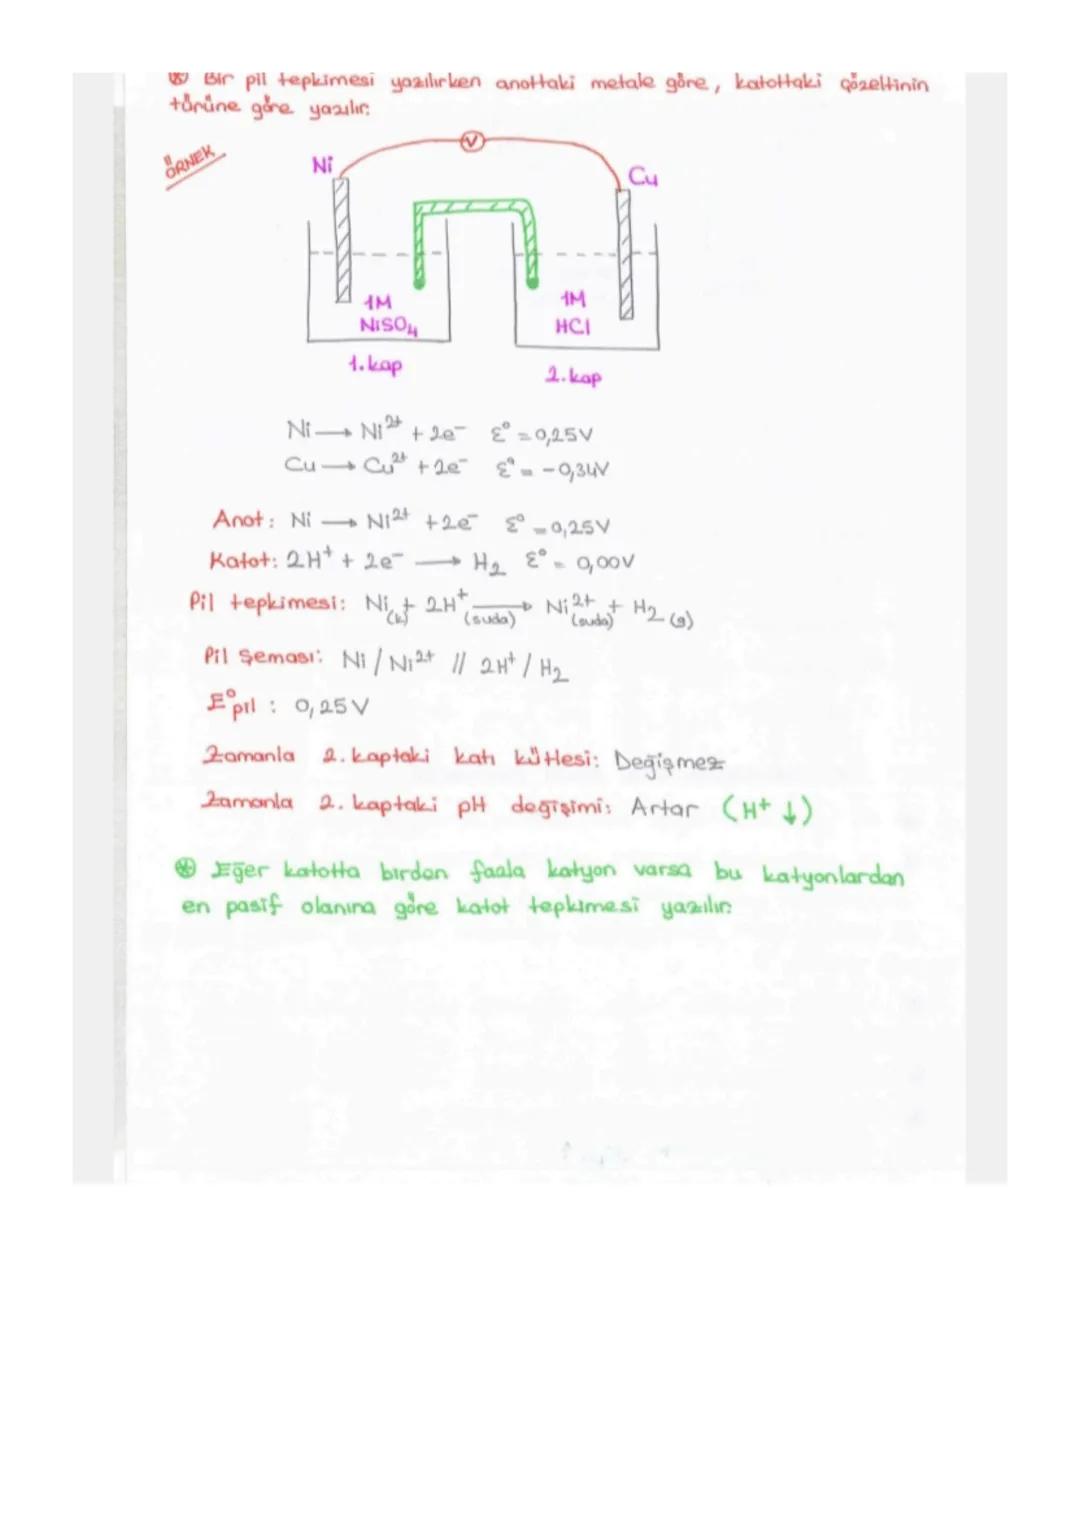 Bir pil tepkimesi yazılırken anottaki metale göre, katottaki çözeltinin
türüne göre yazılır.
ÖRNEK
V
Ni
Cu
1M
NiSO₄
1M
HCl
1.kap
2.kap
Ni → Ni²⁺ + 2e⁻ Ɛ° = 0,25V
Cu → Cu²⁺ + 2e⁻ Ɛ° = -0,34V
Anot: Ni → Ni²⁺ + 2e⁻ Ɛ° = 0,25V
Katot: 2H⁺ + 2e⁻ → H₂ Ɛ° = 0,00V
Pil tepkimesi: Ni(k) + 2H⁺(suda) → Ni²⁺(suda) + H₂(g)
Pil Şeması: Ni / Ni²⁺ // 2H⁺ / H₂
E°pil : 0,25V
Zamanla 2. kaptaki katı kütlesi: Değişmez
Zamanla 2. kaptaki pH değişimi: Artar (H⁺ ↓)
Eğer katotta birden faala katyon varsa bu katyonlardan
en pasif olanına göre katot tepkimesi yazılır.